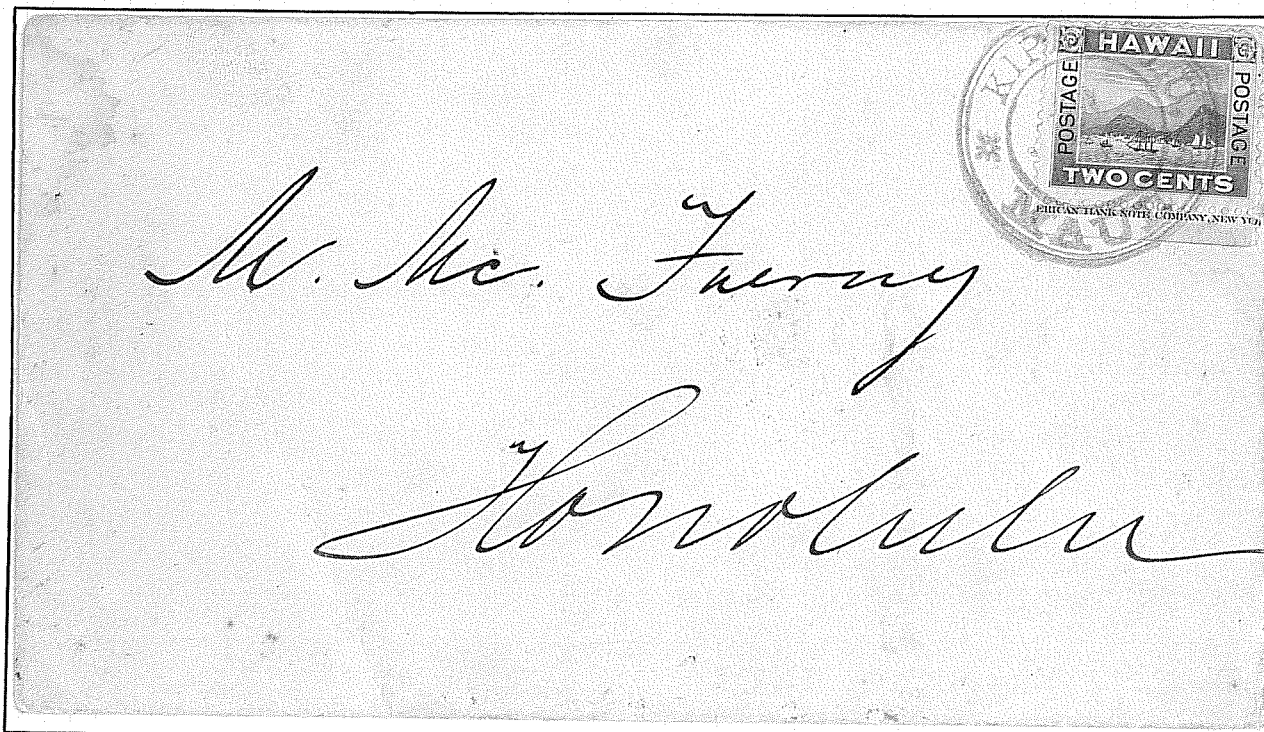 HAWAII
POSTAGE
POSTAGE
TWO CENTS
ERICAN BANK NOTE COMPANY, NEW YO
MAUI
M. Mc. Inerny
Honolulu